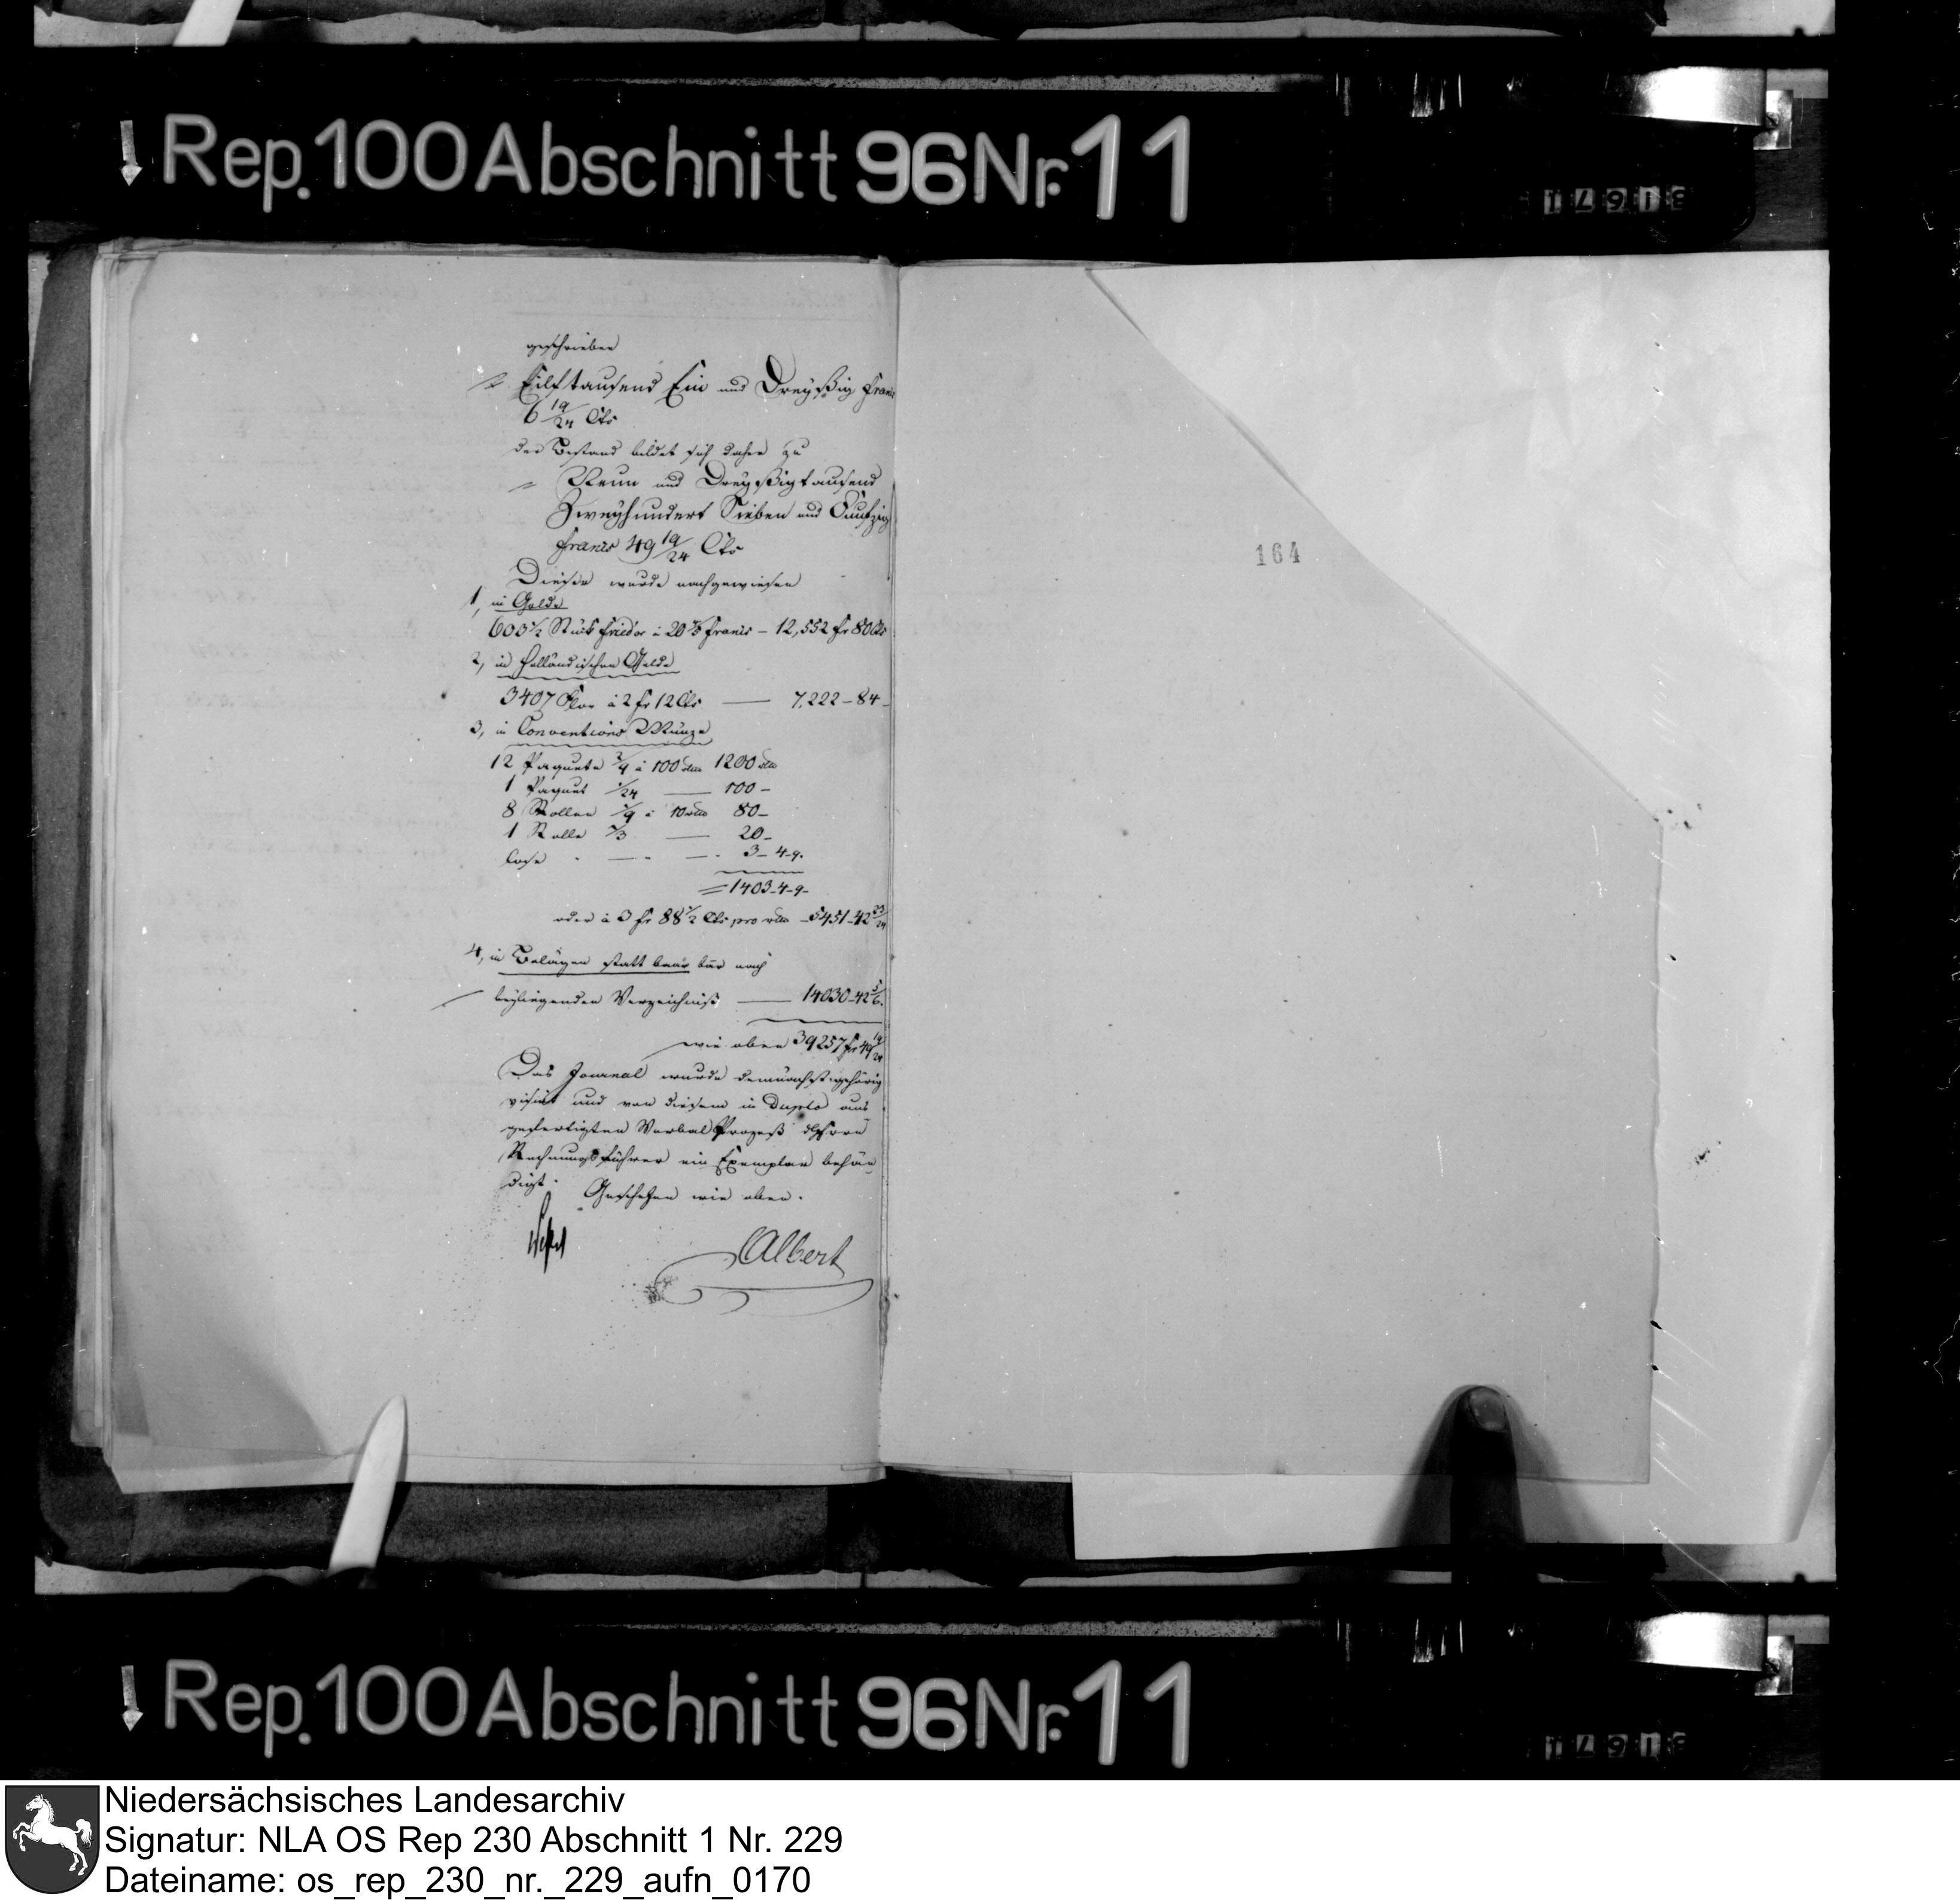 Rep. 100 Abschnitt 96 Nr. 11
geschrieben
Eilftausend Ein und Dreyßig Francs
6 19/24 Cts
der Bestand bildet sich daher zu
Neun und Dreyßigtausend
Zweyhundert Sieben und Funfzig
Francs 49 19/24 Cts
Dieser wurde nachgewiesen
1, in Golde
603 1/2 Stück Fried'or à 20 4/5 Francs – 12,552 fr 80 Cts
2, in holländischen Gelde
3407 Flor à 2 fr 12 Cts — 7,222 – 84 –
3, in Conventions Münze
12 Paquete à 100 rthlr 1200 rthlr
1 Paquet 1/24 — 100 –
8 Rollen à 10 rthlr 80 –
1 Rolle 2/3 — 20 –
lose — 3 – 4 – 9.
= 1403 – 4 – 9 –
oder à 3 fr 88 1/2 Cts pro rthlr – 5451 – 42 23/24
4, in Belägen statt baar nach
beyliegenden Verzeichniß — 14030 – 42 5/6.
wie oben 39257 fr 49 19/24
Das Journal wurde demnächst gehörig
visirt und von diesem in Duplo aus
gefertigten Verbal Prozeß
Rechnungsführer ein Exemplar behän
digt. Geschehen wie oben.
Albert
164
Rep. 100 Abschnitt 96 Nr. 11
Niedersächsisches Landesarchiv
Signatur: NLA OS Rep 230 Abschnitt 1 Nr. 229
Dateiname: os_rep_230_nr._229_aufn_0170